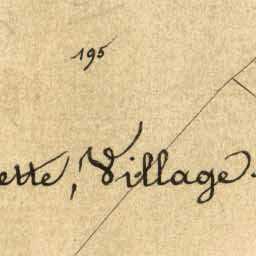 195
ette, Village.